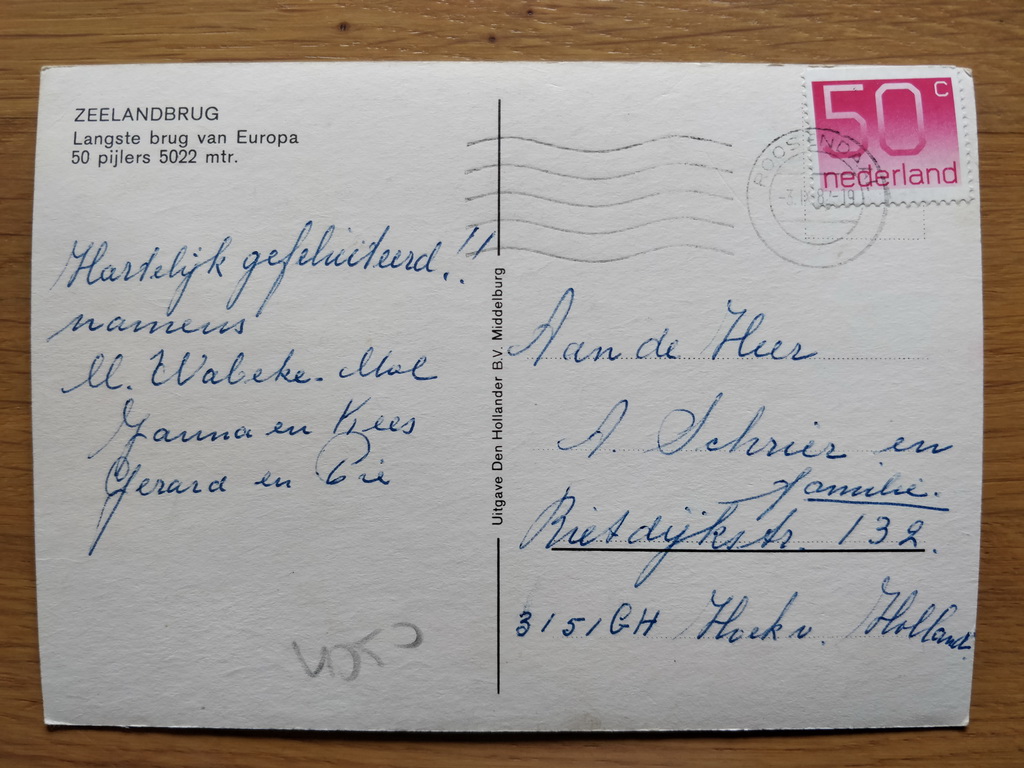 ZEELANDBRUG
Langste brug van Europa
50 pijlers 5022 mtr.
Hartelijk gefeliciteerd.!!
namens
M. Walseke. Mol
Janna en Kees
Gerard en Pie
Uitgave Den Hollander B.V. Middelburg
50 c
nederland
ROOSENDAAL
Aan de Heer
A. Schrier en
familie.
Rietdijkstr. 132.
3151GH Hoek v. Holland